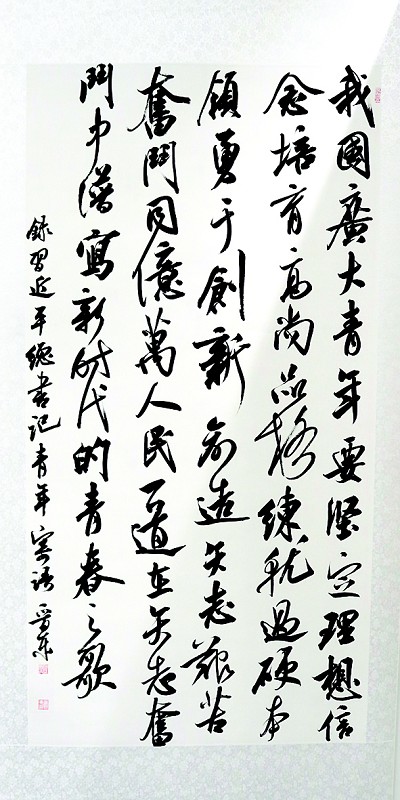 我國廣大青年要堅定理想信
念培育高尚品格練就過硬本
領勇于創新創造矢志艱苦
奮鬥同億萬人民一道在矢志奮
鬥中譜寫新时代的青春之歌
錄習近平總書记青年寄语